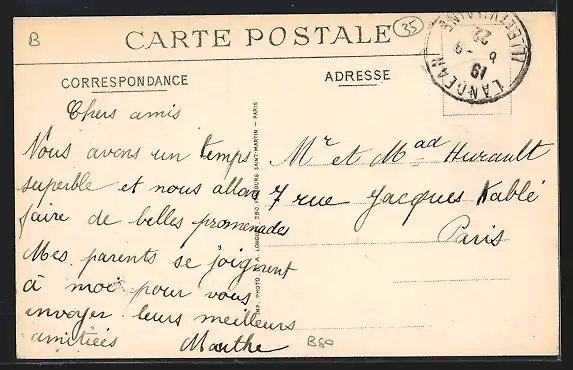 B
35
CARTE POSTALE
CORRESPONDANCE
ADRESSE
LANDEAN
ILLE-ET-VILAINE
19
6 - 9
22
Chers amis
Nous avons un temps
superble et nous allons
faire de belles promenades
Mes parents se joignent
à moi pour vous
envoyer leurs meilleurs
amitiées Marthe
B50
IMP. PHOTO. A. LONGUET, 250, FAUBOURG SAINT-MARTIN — PARIS
Mr et Mad Hurault
7 rue Jacques Kablé
Paris